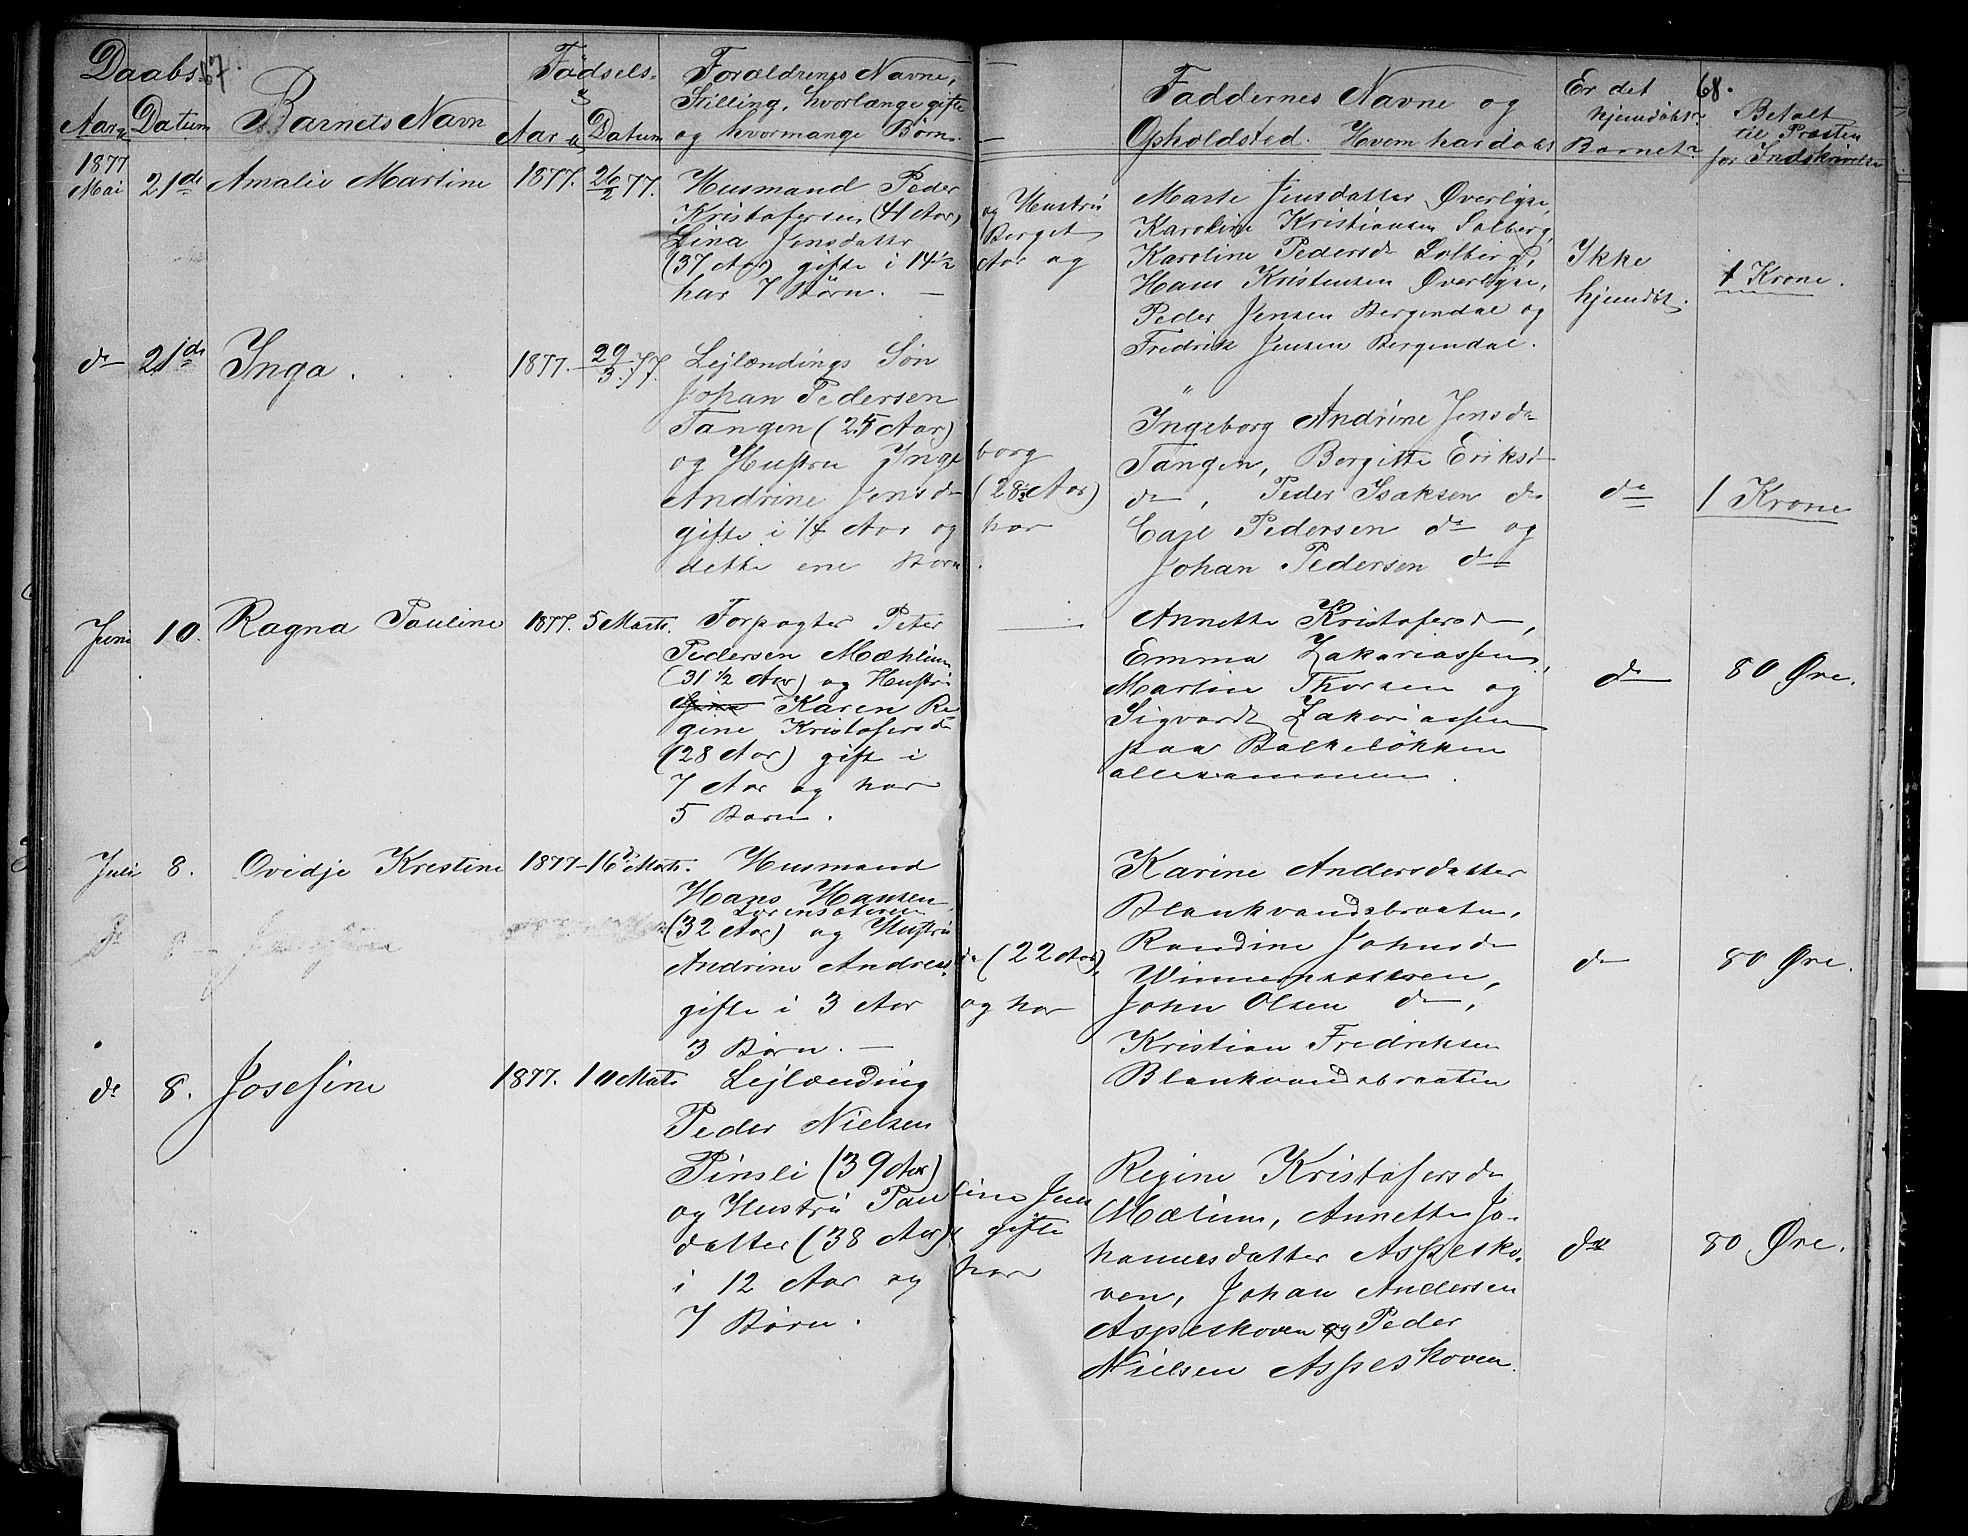 67
68.
Daabs-
Aar & Datum
Barnets Navn
Fødsels-
Aar & Datum
Forældrenes Navne,
Stilling, hvorlænge gifte
og hvormange Børn.
Faddernes Navne og
Opholdsted. Hvem har døbt
Barnet?
Er det
hjemdøbt?
Betalt
til Præsten
for Indskrivelse
1877
Mai 21de Amalie Martine 1877. 26/2 77.
Husmand Peder
Kristofersen (41 Aar) og Hustru
Lina Jensdatter Berget
(37 Aar) gifte i 14½ Aar og
har 7 Børn. —
Marte Jensdatter Øverbye,
Karoline Kristiansen Solberg,
Karoline Pedersd Solberg,
Hans Kristensen Øverbye,
Peder Jensen Bergendal og
Fredrik Jensen Bergendal.
Ikke
hjemdøbt.
1 Krone.
do 21de Inga. 1877. 29/3 77.
Lejlændings Søn
Johan Pedersen
Tangen (25 Aar)
og Hustru Ingeborg
Andrine Jensd (28 Aar)
gifte i 1/4 Aar og har
dette ene Barn.
Ingeborg Andrine Jensd
Tangen, Bergitte Eriksd
do, Peder Isaksen do
Carl Pedersen do og
Johan Pedersen do
do
1 Krone
Juni 10. Ragna Pauline 1877. 5 Marts.
Forpagter Peter
Pedersen Mæhlum
(31 ½ Aar) og Hustru
Karen Re
gine Kristofersd
(28 Aar) gift i
7 Aar og har
5 Børn.
Annette Kristofersd,
Emma Zakariassen,
Martin Thorsen og
Sigvardt Zakariassen
paa Balkeløkken
allesammen.
do
80 Øre.
Juli 8. Ovidje Kristine 1877 - 16de Marts.
Husmand
Hans Hansen
(32 Aar) og Hustru
Andrine Andreasd (22 Aar),
gifte i 3 Aar og har
3 Børn. —
Karine Andersdatter
Blankvandsbraaten,
Randine Johnsd
John Olsen do,
Kristian Fredriksen
Blankvandsbraaten
do
80 Øre.
do 8. Josefine 1877. 10 Marts
Lejlænding
Peder Nielsen
Pinsli (39 Aar)
og Hustru Pauline Jens
datter (38 Aar) gifte
i 12 Aar og har
7 Børn.
Regine Kristofersd
Mælum, Annette Jo-
hannesdatter Aspesko-
ven, Johan Andersen
Aspeskoven og Peder
Nielsen Aspeskoven.
do
80 Øre.